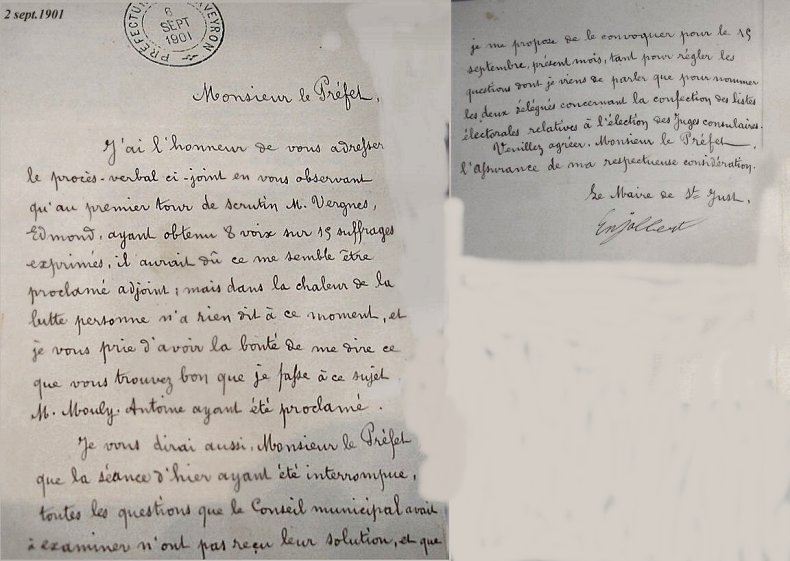 2 sept.1901
PRÉFECTURE AVEYRON
6
SEPT
1901
Monsieur le Préfet,
J'ai l'honneur de vous adresser
le procès-verbal ci-joint en vous observant
qu'au premier tour de scrutin M. Vergnes,
Edmond, ayant obtenu 8 voix sur 15 suffrages
exprimés, il aurait dû ce me semble être
proclamé adjoint; mais dans la chaleur de la
lutte personne n'a rien dit à ce moment, et
je vous prie d'avoir la bonté de me dire ce
que vous trouvez bon que je fasse à ce sujet
M. Mouly. Antoine ayant été proclamé.
Je vous dirai aussi, Monsieur le Préfet
que la séance d'hier ayant été interrompue,
toutes les questions que le Conseil municipal avait
à examiner n'ont pas reçu leur solution, et que
je me propose de le convoquer pour le 15
septembre, présent mois, tant pour régler les
questions dont je viens de parler que pour nommer
les deux délégués concernant la confection des listes
électorales relatives à l'élection des Juges consulaires.
Veuillez agréer, Monsieur le Préfet,
l'assurance de ma respectueuse considération.
Le Maire de St Just,
Enjalbert